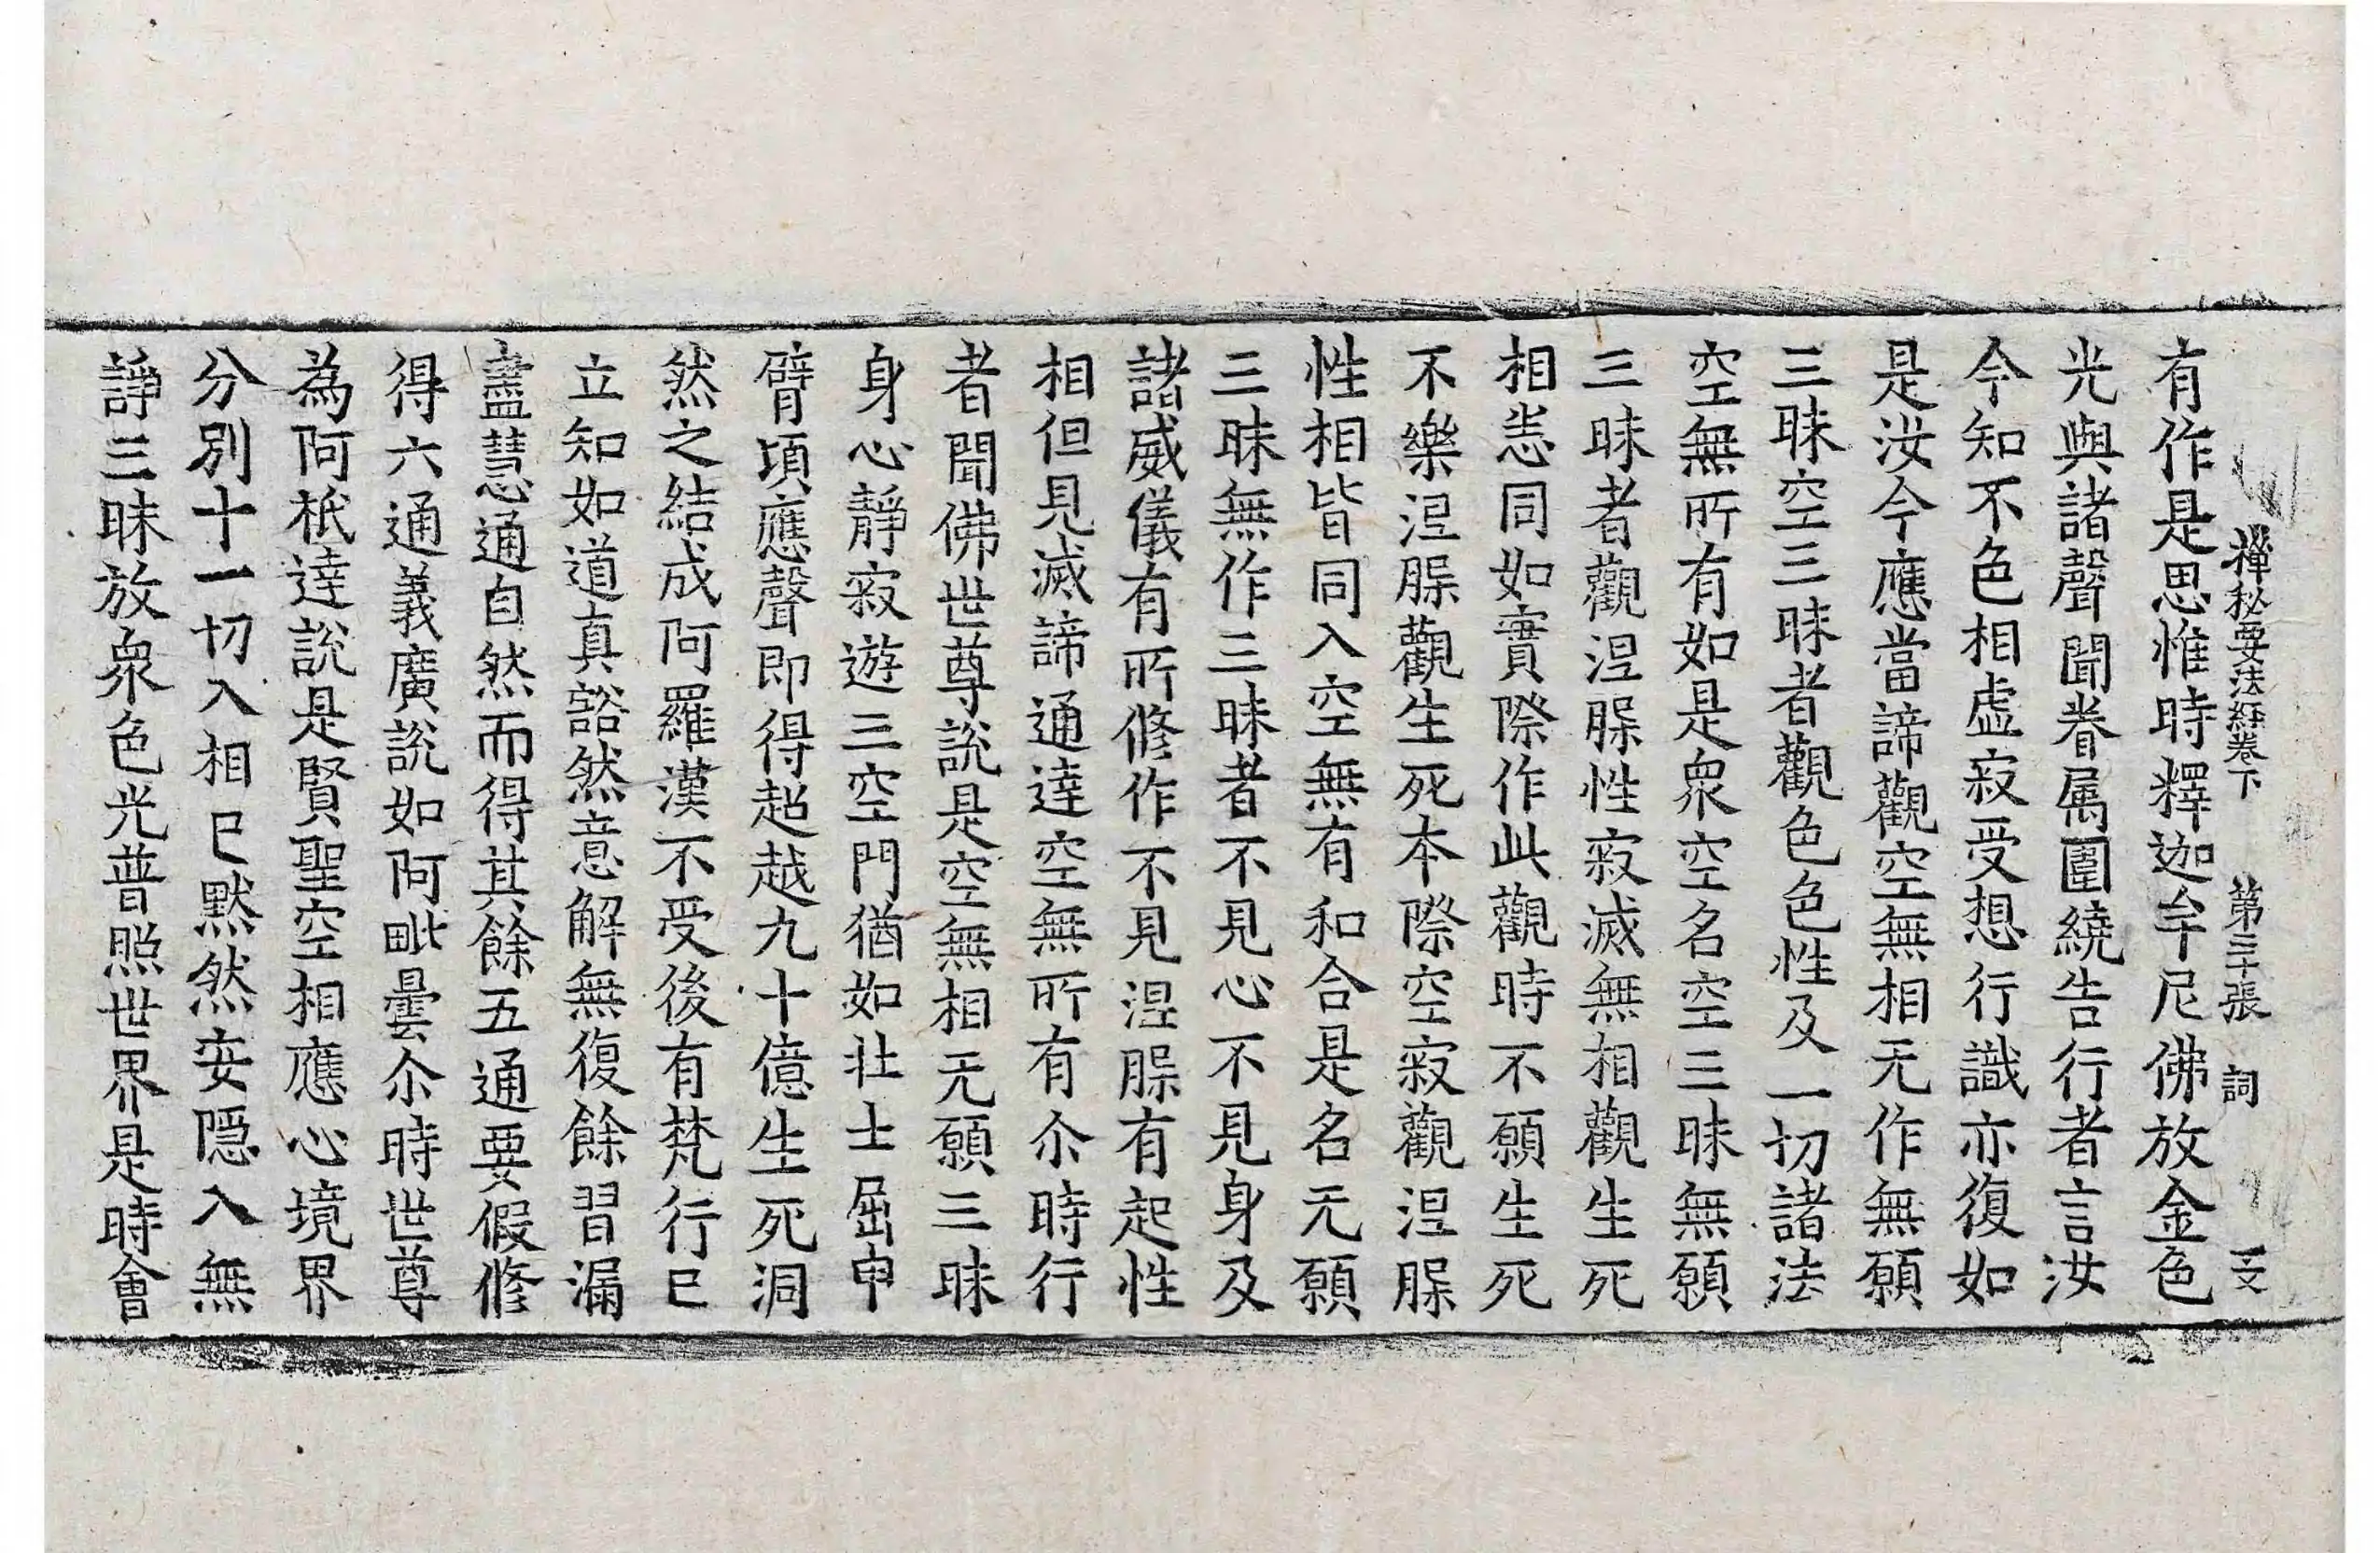 禪秘要法經卷下 第三十張 詞 文
有作是思惟時釋迦牟尼佛放金色
光與諸聲聞眷属圍繞告行者言汝
今知不色相虛寂受想行識亦復如
是汝今應當諦觀空無相无作無願
三昧空三昧者觀色色性及一切諸法
空無所有如是衆空名空三昧無願
三昧者觀涅槃性寂滅無相觀生死
相悉同如實際作此觀時不願生死
不樂涅槃觀生死本際空寂觀涅槃
性相皆同入空無有和合是名无願
三昧無作三昧者不見心不見身及
諸威儀有所修作不見涅槃有起性
相但見滅諦通達空無所有尒時行
者聞佛世尊說是空無相无願三昧
身心靜寂遊三空門猶如壯士屈申
臂頃應聲即得超越九十億生死洞
然之結成阿羅漢不受後有梵行已
立知如道真豁然意解無復餘習漏
盡慧通自然而得其餘五通要假修
得六通義廣說如阿毗曇尒時世尊
為阿秖達說是賢聖空相應心境界
分別十一切入相已默然安隱入無
諍三昧放衆色光普照世界是時會